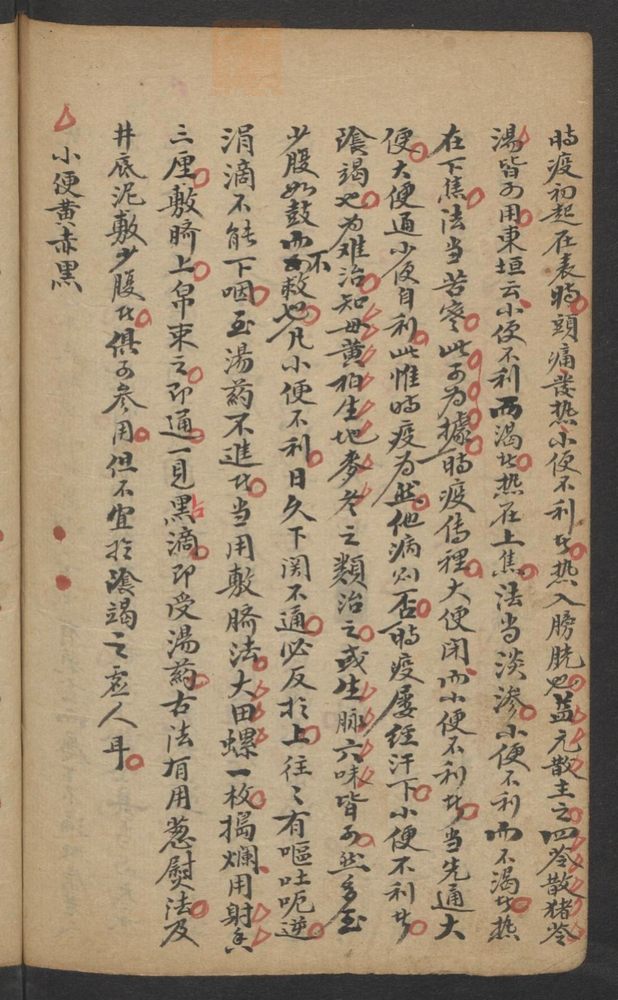 時疫初起在表時頭痛發热小便不利者热入膀胱也益元散主之四苓散猪苓
湯皆可用東垣云小便不利而渴者热在上焦法当淡滲小便不利而不渴者热
在下焦法当苦寒此可为據時疫傳裡大便闭而小便不利者当先通大
便大便通小便自利此惟時疫为然他病则否時疫屡經汗下小便不利者
陰竭也为难治知母黄柏生地麥冬之類治之或生脉六味皆可然多至
少腹如鼓而不救也凡小便不利日久下関不通必反扵上往々有嘔吐呃逆
涓滴不能下咽至湯药不進者当用敷臍法大田螺一枚搗爛用射香
三厘敷臍上帛束之即通一見黑滴即受湯药古法有用葱熨法及
井底泥敷少腹者俱可參用但不宜扵陰竭之虚人耳
小便黄赤黑